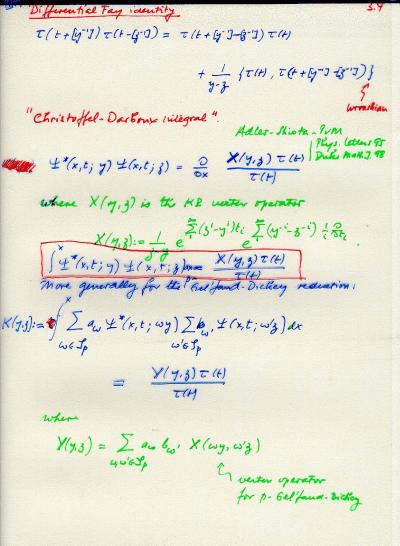 Differential Fay identity
3.4
τ(t+[y⁻¹]) τ(t-[z⁻¹]) = τ(t+[y⁻¹]-[z⁻¹]) τ(t)
+ 1/(y-z) {τ(t), τ(t+[y⁻¹]-[z⁻¹])}
Wronskian
"Christoffel-Darboux integral".
Adler-Shiota-PvM
Phys. Letters 95
Duke Math J. 98
Ψ*(x,t;y) Ψ(x,t;z) = ∂/∂x X(y,z)τ(t)/τ(t)
where X(y,z) is the KP vertex operator
X(y,z) := 1/(z-y) e^{Σ₁^∞ (zⁱ-yⁱ)tᵢ} e^{Σ₁^∞ (y⁻ⁱ-z⁻ⁱ) 1/i ∂/∂tᵢ}
∫ˣ Ψ*(x,t;y) Ψ(x,t;z) dx = X(y,z)τ(t)/τ(t)
More generally for the p-Gel'fand-Dickey reduction:
K(y,z) := ∫ˣ Σ_{ω∈ζₚ} a_ω Ψ*(x,t;ωy) Σ_{ω'∈ζₚ} b_ω' Ψ(x,t;ω'z) dx
= Y(y,z)τ(t)/τ(t)
where
Y(y,z) = Σ_{ω,ω'∈ζₚ} a_ω b_ω' X(ωy, ω'z)
vertex operator
for p-Gel'fand-Dickey